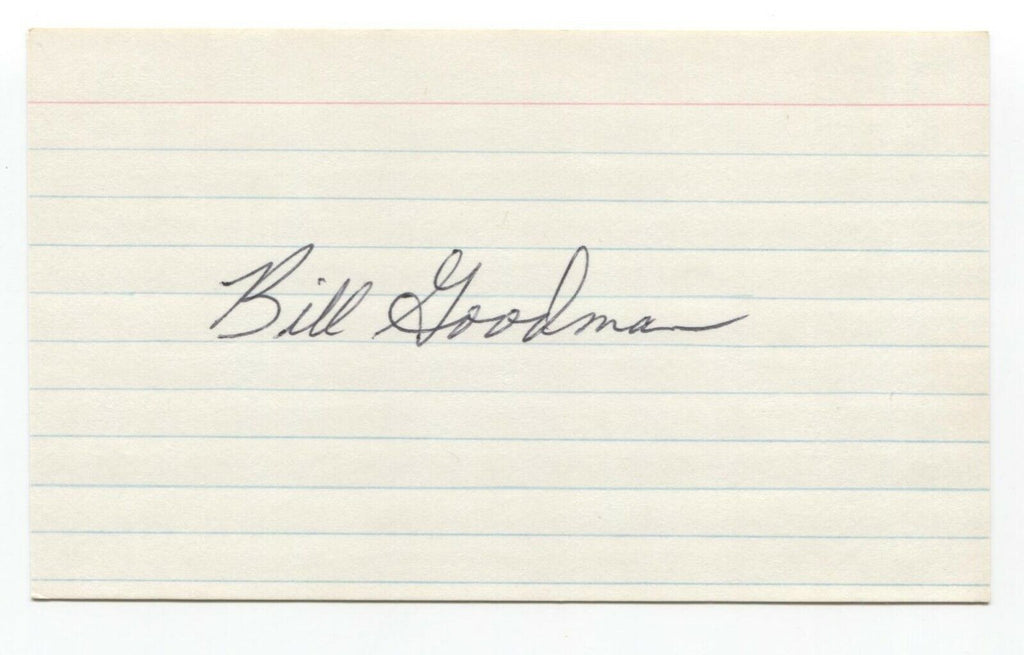 Bill Goodman